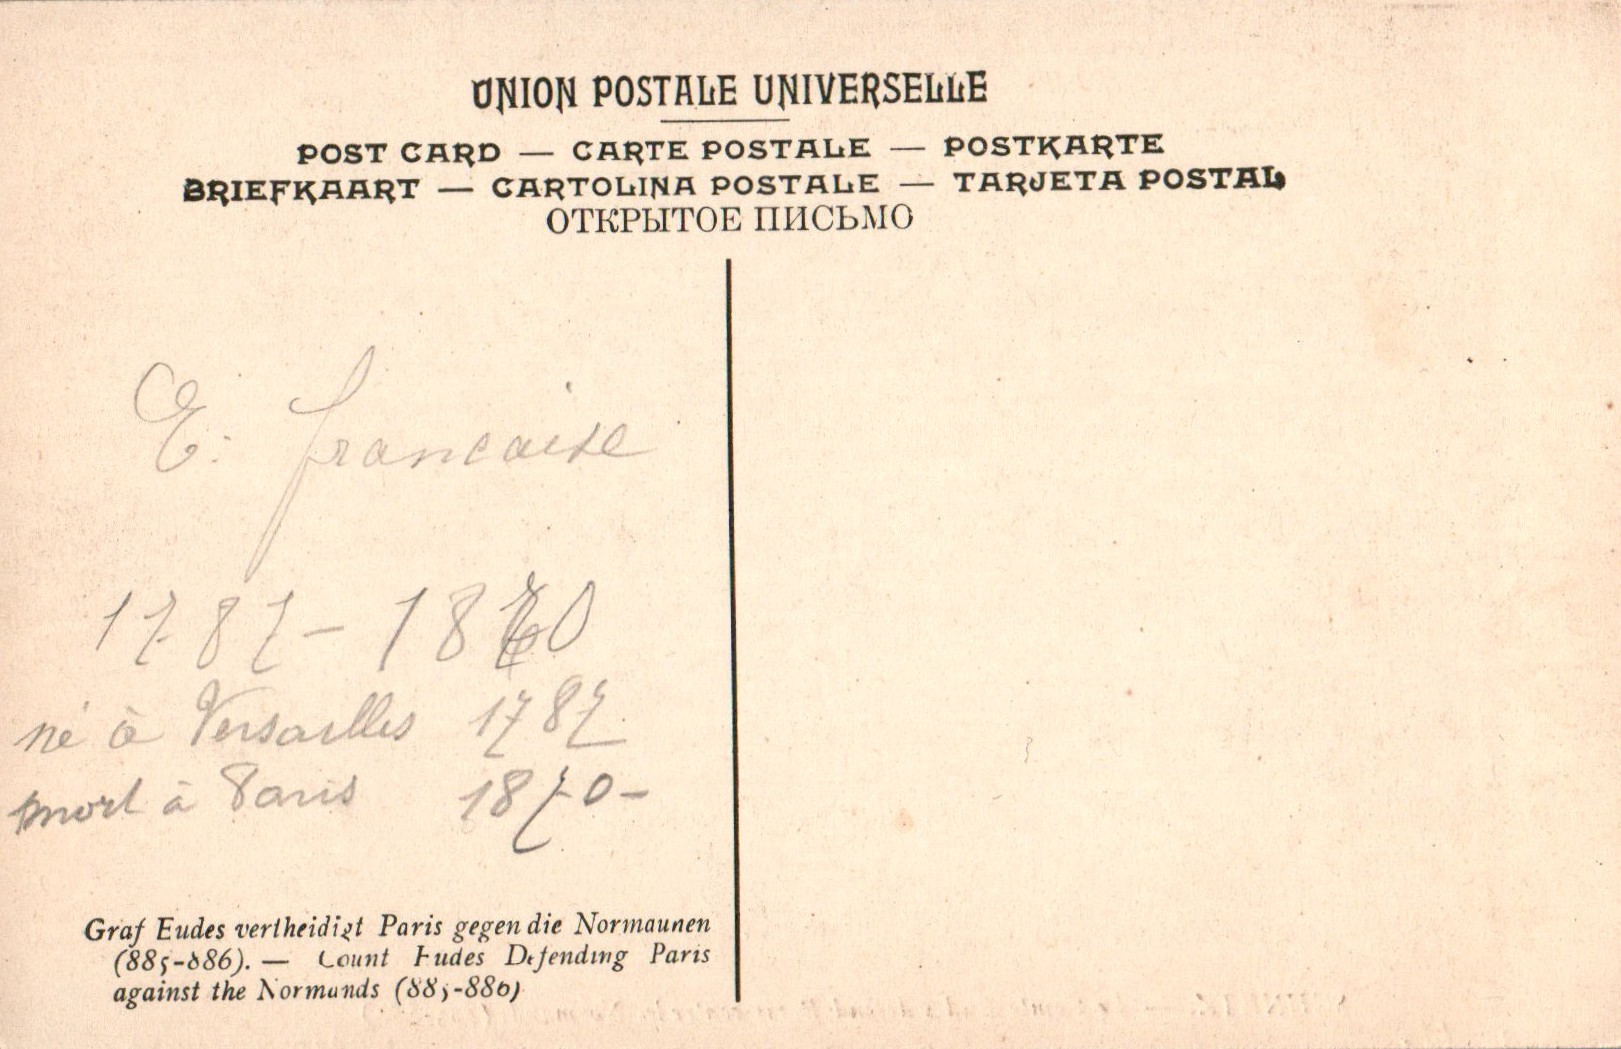 UNION POSTALE UNIVERSELLE
POST CARD — CARTE POSTALE — POSTKARTE
BRIEFKAART — CARTOLINA POSTALE — TARJETA POSTAL
ОТКРЫТОЕ ПИСЬМО
E. francaise
1787 - 1870
né à Versailles 1787
mort à Paris 1870 -
Graf Eudes vertheidigt Paris gegen die Normaunen
(885-886). — Count Eudes Defending Paris
against the Normands (885-886)